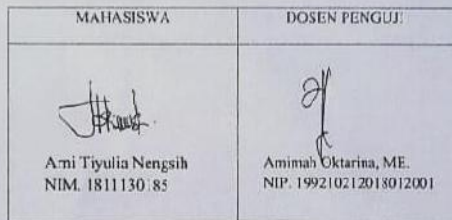 MAHASISWA
DOSEN PENGUJI
Ami Tiyulia Nengsih
NIM. 1811130185
Amimah Oktarina, ME.
NIP. 199210212018012001